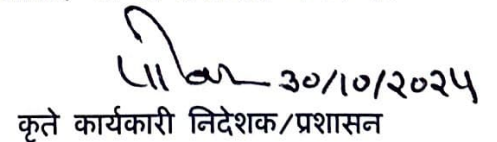 ३०/१०/२०२५
कृते कार्यकारी निदेशक/प्रशासन